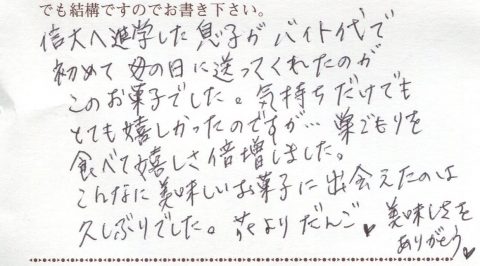 でも結構ですのでお書き下さい。
信大へ進学した息子がバイト代で
初めて母の日に送ってくれたのが
このお菓子でした。気持ちだけでも
とても嬉しかったのですが…巣ごもりを
食べて嬉しさ倍増しました。
こんなに美味しいお菓子に出会えたのは
久しぶりでした。花よりだんご♥美味しさを
ありがとう♥